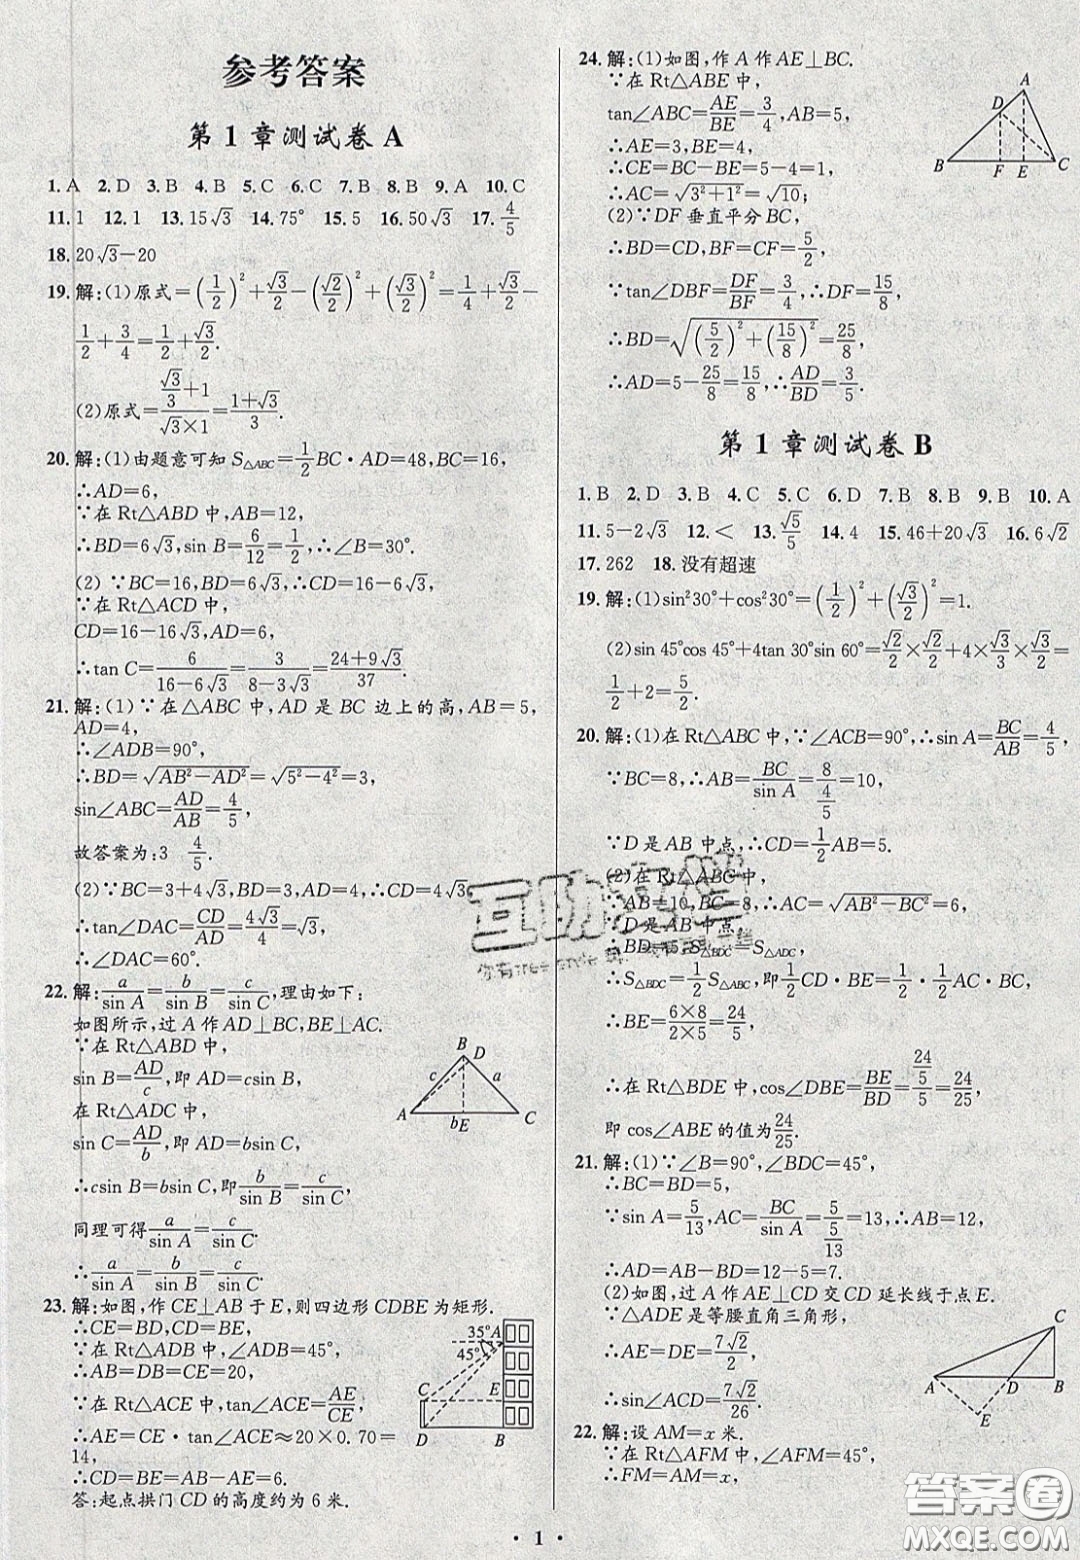 参考答案
第1章测试卷A
1.A 2.D 3.B 4.B 5.C 6.C 7.B 8.B 9.A 10.C
11.1 12.1 13.15√3 14.75° 15.5 16.50√3 17.4/5
18.20√3−20
19.解:(1)原式=(1/2)²+√3/2−(√2/2)²+(√3/2)²=1/4+√3/2−
1/2+3/4=1/2+√3/2.
(2)原式=(√3/3+1)/(√3×1)=(1+√3)/3.
20.解:(1)由题意可知S△ABC=1/2BC·AD=48,BC=16,
∴AD=6,
∵在Rt△ABD中,AB=12,
∴BD=6√3,sin B=6/12=1/2,∴∠B=30°.
(2)∵BC=16,BD=6√3,
∵在Rt△ACD中,
CD=16−16√3,AD=6,
∴tan C=6/(16−6√3)=3/(8−3√3)=(24+9√3)/37.
21.解:(1)∵在△ABC中,AD是BC边上的高,AB=5,
AD=4,
∴∠ADB=90°,
∴BD=√(AB²−AD²)=√(5²−4²)=3,
sin∠ABC=AD/AB=4/5,
故答案为:3 4/5.
(2)∵BC=3+4√3,BD=3,∴CD=4√3,
∴tan∠DAC=CD/AD=4√3/4=√3,
∴∠DAC=60°.
22.解:a/sin A=b/sin B=c/sin C,理由如下:
如图所示,过A作AD⊥BC,BE⊥AC.
∵在Rt△ABD中,
sin B=AD/c,即AD=csin B,
在Rt△ADC中,
sin C=AD/b,即AD=bsin C,
∴csin B=bsin C,即b/sin B=c/sin C,
同理可得a/sin A=c/sin C,
∴a/sin A=b/sin B=c/sin C.
B D c a A bE C
23.解:如图,作CE⊥AB于E,则四边形CDBE为矩形.
∴CE=BD,CD=BE,
∵在Rt△ADB中,∠ADB=45°,
∴AB=DB=CE=20,
∵在Rt△ACE中,tan∠ACE=AE/CE,
∴AE=CE·tan∠ACE≈20×0.70=
14,
∴CD=BE=AB−AE=6.
答:起点拱门CD的高度约为6米.
35° A 45° C E D B
24.解:(1)如图,作A作AE⊥BC.
∵在Rt△ABE中,
tan∠ABC=AE/BE=3/4,AB=5,
∴AE=3,BE=4,
∴CE=BC−BE=5−4=1,
∴AC=√(3²+1²)=√10;
(2)∵DF垂直平分BC,
∴BD=CD,BF=CF=5/2,
∵tan∠DBF=DF/BF=3/4,∴DF=15/8,
∴BD=√((5/2)²+(15/8)²)=25/8,
∴AD=5−25/8=15/8,∴AD/BD=3/5.
A D B F E C
第1章测试卷B
1.B 2.D 3.B 4.C 5.C 6.D 7.B 8.B 9.B 10.A
11.5−2√3 12.< 13.√5/5 14.4 15.46+20√3 16.6√2
17.262 18.没有超速
19.解:(1)sin²30°+cos²30°=(1/2)²+(√3/2)²=1.
(2)sin 45°cos 45°+4tan 30°sin 60°=√2/2×√2/2+4×√3/3×√3/2=
1/2+2=5/2.
20.解:(1)在Rt△ABC中,∵∠ACB=90°,∴sin A=BC/AB=4/5,
∵BC=8,∴AB=BC/sin A=8/(4/5)=10,
∵D是AB中点,∴CD=1/2AB=5.
(2)在Rt△ABC中,
∵AB=10,BC=8,∴AC=√(AB²−BC²)=6,
∵D是AB中点,
∴BD=5,S△BDC=S△ADC,
∴S△BDC=1/2S△ABC,即1/2CD·BE=1/2·1/2AC·BC,
∴BE=(6×8)/(2×5)=24/5,
∴在Rt△BDE中,cos∠DBE=BE/BD=(24/5)/5=24/25,
即cos∠ABE的值为24/25.
21.解:(1)∵∠B=90°,∠BDC=45°,
∴BC=BD=5,
∵sin A=5/13,AC=BC/sin A=5/(5/13)=13,∴AB=12,
∴AD=AB−BD=12−5=7.
(2)如图,过A作AE⊥CD交CD延长线于点E.
∵△ADE是等腰直角三角形,
∴AE=DE=7√2/2,
∴sin∠ACD=7√2/26.
C A D B E
22.解:设AM=x米.
∵在Rt△AFM中,∠AFM=45°,
∴FM=AM=x,
互助
答案圈
MXQE.COM
· 1 ·